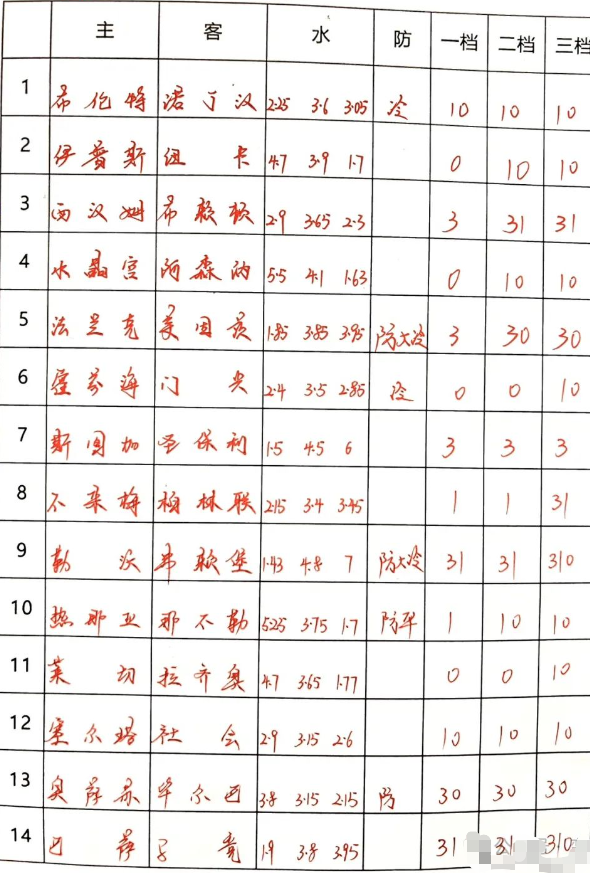 主 客 水 防 一档 二档 三档
1 希伦特 诺丁汉 2.25 3.6 3.05 冷 10 10 10
2 伊普斯 纽卡 4.7 3.9 1.7 0 10 10
3 西汉姆 布赖顿 2.9 3.65 2.3 3 31 31
4 水晶宫 阿森纳 5.5 4.1 1.63 0 10 10
5 法兰克 美因茨 1.85 3.85 3.95 防大冷 3 30 30
6 霍芬海 门兴 2.4 3.5 2.85 冷 0 0 10
7 斯图加 圣保利 1.5 4.5 6 3 3 3
8 不来梅 柏林联 2.15 3.4 3.45 1 1 31
9 勒沃 弗赖堡 1.43 4.8 7 防大冷 31 31 310
10 热那亚 那不勒 5.25 3.75 1.7 防平 1 10 10
11 莱切 拉齐奥 4.7 3.65 1.77 0 0 10
12 塞尔塔 社会 2.9 3.15 2.6 10 10 10
13 奥萨苏 毕尔巴 3.8 3.15 2.15 防 30 30 30
14 巴萨 马竞 1.9 3.8 3.95 31 31 310